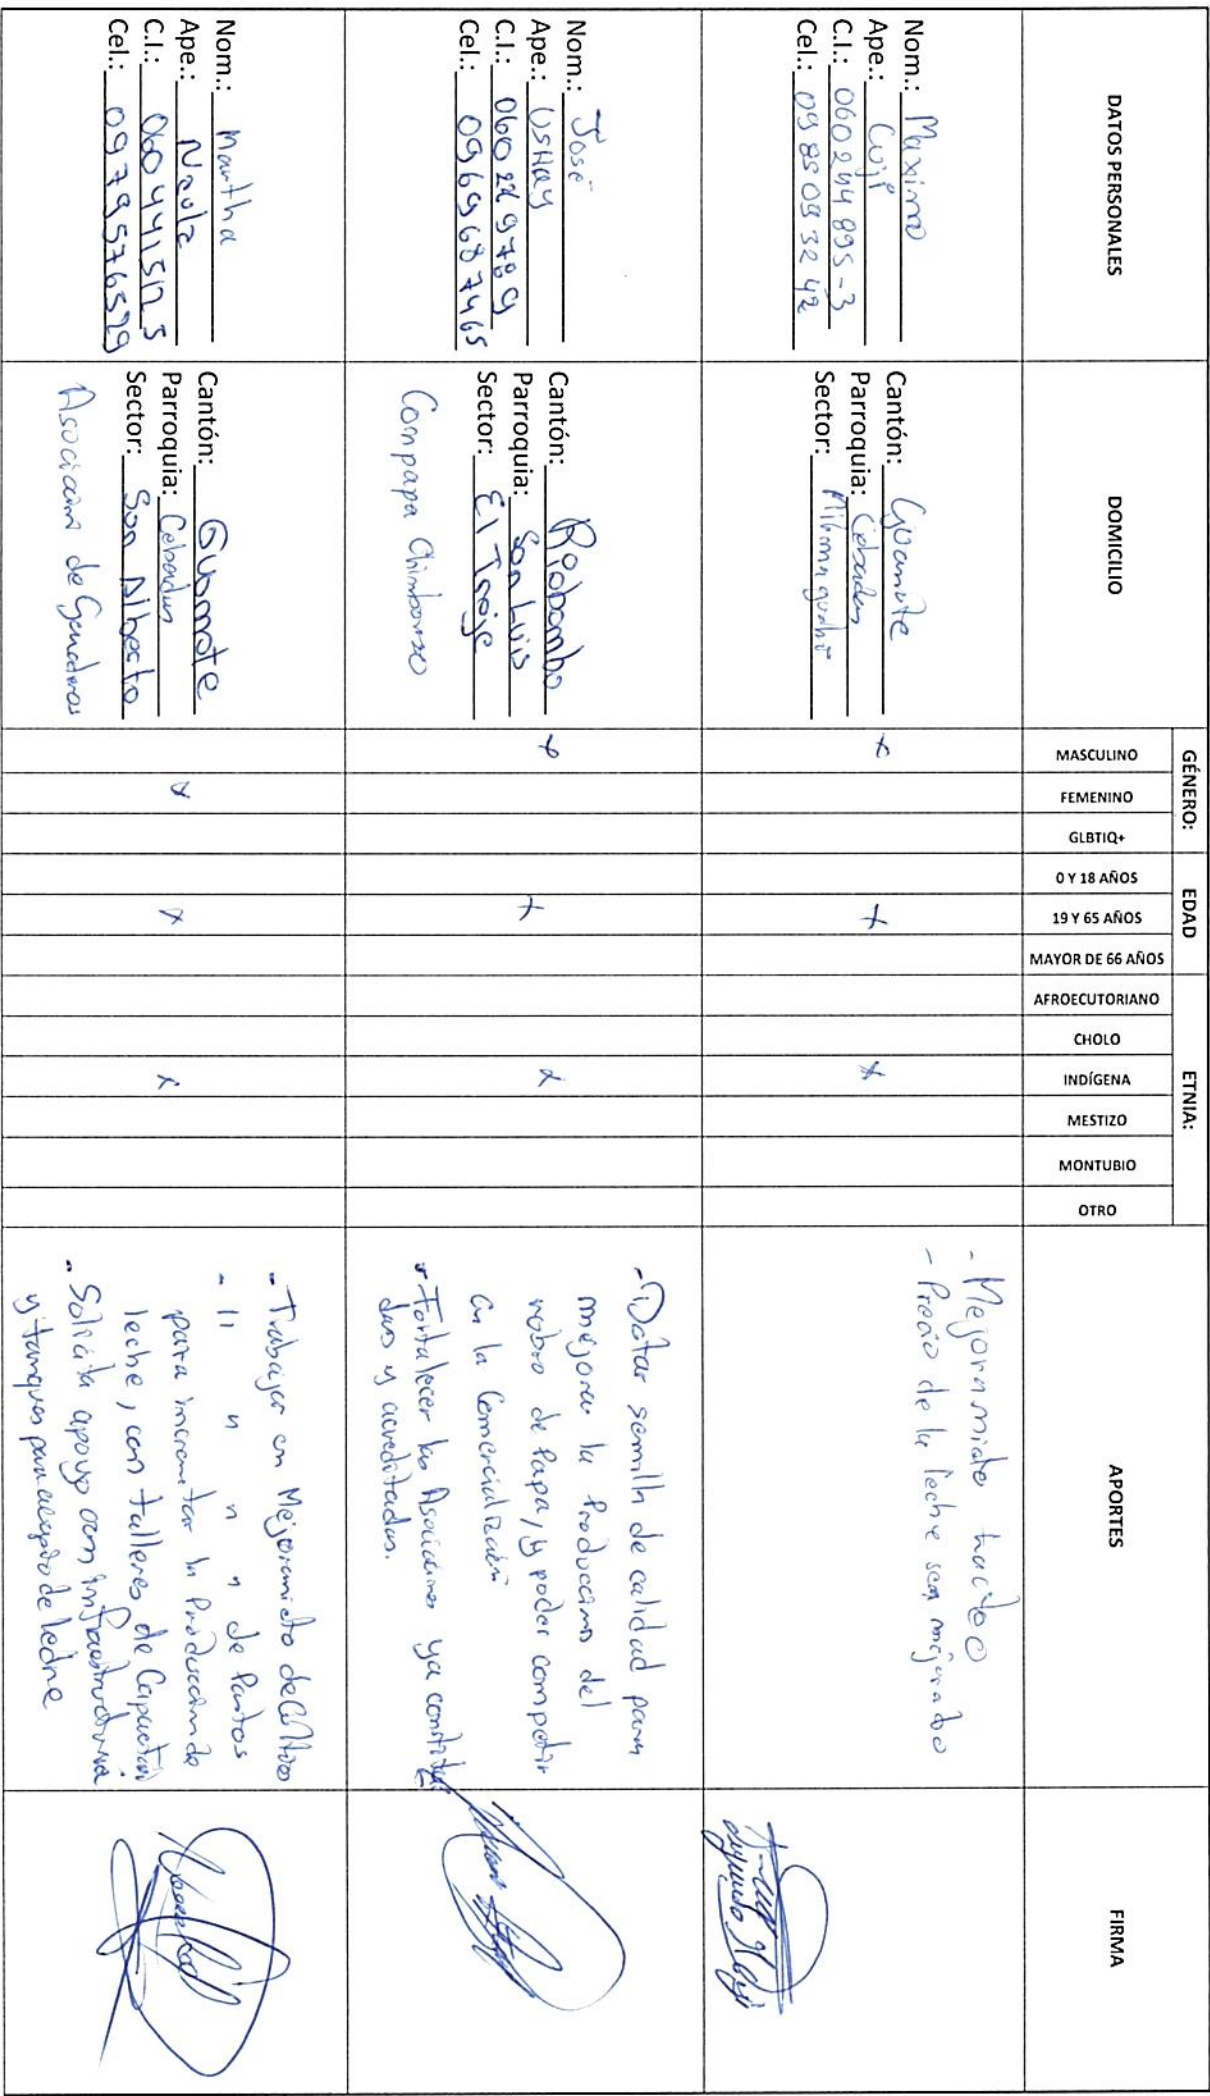 DATOS PERSONALES
DOMICILIO
GÉNERO:
EDAD
ETNIA:
APORTES
FIRMA
MASCULINO
FEMENINO
GLBTIQ+
0 Y 18 AÑOS
19 Y 65 AÑOS
MAYOR DE 66 AÑOS
AFROECUTORIANO
CHOLO
INDÍGENA
MESTIZO
MONTUBIO
OTRO
Nom.: Maximo
Ape.: Cuji
C.I.: 060244895-3
Cel.: 0985093242
Cantón: Guamote
Parroquia: Cebadas
Sector:
x
x
x
- Mejoramiato
- Precio de la leche sea mejorado
Nom.: José
Ape.: USHAY
C.I.: 0602269789
Cel.: 0969687465
Cantón: Riobamba
Parroquia: San Luis
Sector: El Troje
Conpapa Chimborazo
x
x
x
- Dotar semilla de calidad para
mejorar la Produccion del
rubro de Papa, y poder competir
en la Comercialización
- Fortalecer las Asociaciones ya constitui
das y acreditadas.
Nom.: Martha
Ape.: Naula
C.I.: 0604415125
Cel.: 0979576529
Cantón: Guamote
Parroquia: Cebadas
Sector: San Alberto
Asociación de Ganaderos
x
x
x
- Trabajar en Mejoramieto de Cultivos
- 11 " " " de Pastos
para incremetar la Produccion de
leche, con talleres de Capacitación
- Solicita apoyo con infraestructura
y tanques para acopio de leche